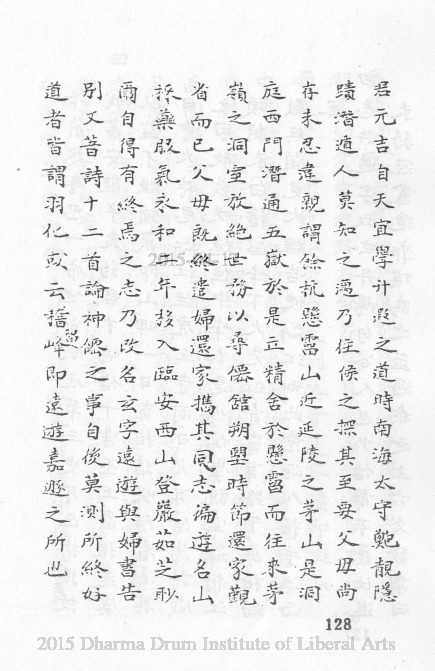 君元吉自天宜學升遐之道時南海太守鮑靚隱
蹟潛遁人莫知之邁乃往候之探其至要父母尚
存未忍違親謂餘杭懸霤山近延陵之茅山是洞
庭西門潛通五嶽於是立精舍於懸霤而往來茅
嶺之洞室放絕世務以尋僊館朔朢時節還家覲
省而已父母既終遣婦還家攜其同志徧遊名山
採藥服氣永和二年移入臨安西山登巖茹芝眇
爾自得有終焉之志乃改名玄字遠遊與婦書告
別又著詩十二首論神僊之事自後莫測所終好
道者皆謂羽化或云稽留峰即遠遊嘉遯之所也
128
2015 Dharma Drum Institute of Liberal Arts